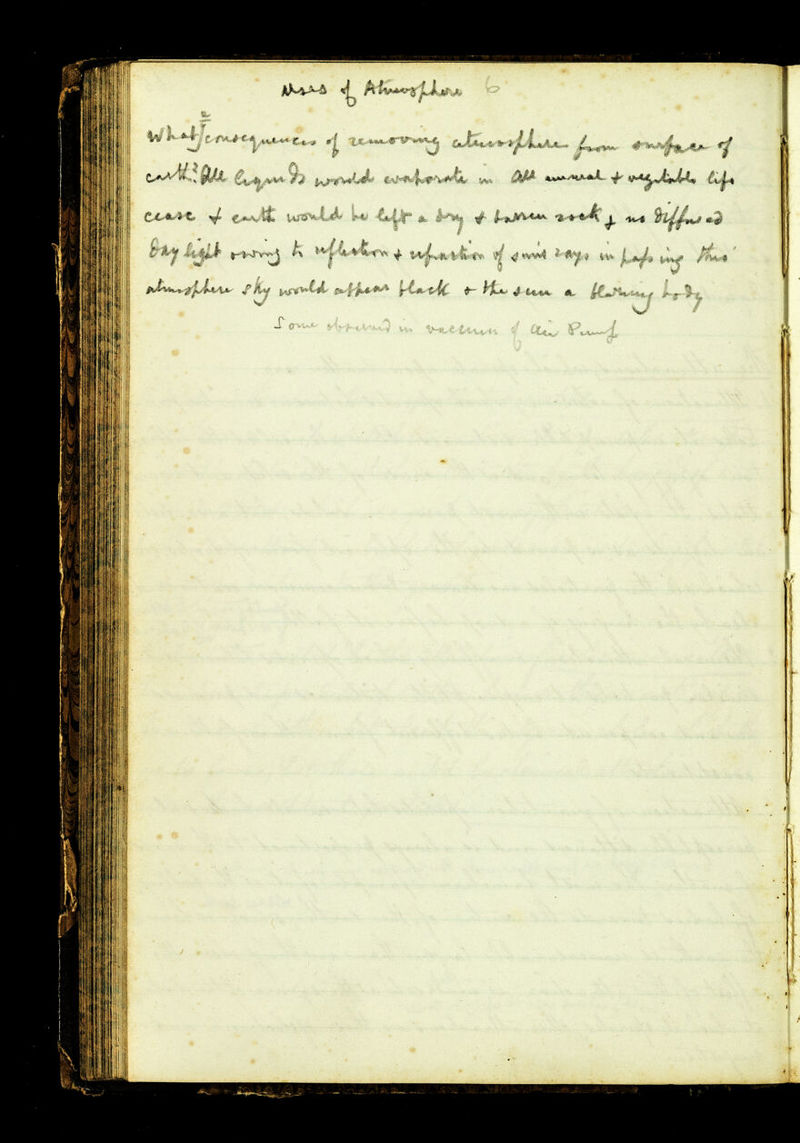 Uses of Atmosphere 6
What consequences of removing atmosphere from surface of
earth? All liquids would evaporate in All animal & vegetable life
cease & earth would be left a dry & barren rock & no diffused
day light owing to reflection & refraction of sun's rays in passing thro'
atmosphere sky would appear black & the sun a blazing body
Some observed in vacuum of Air Pump